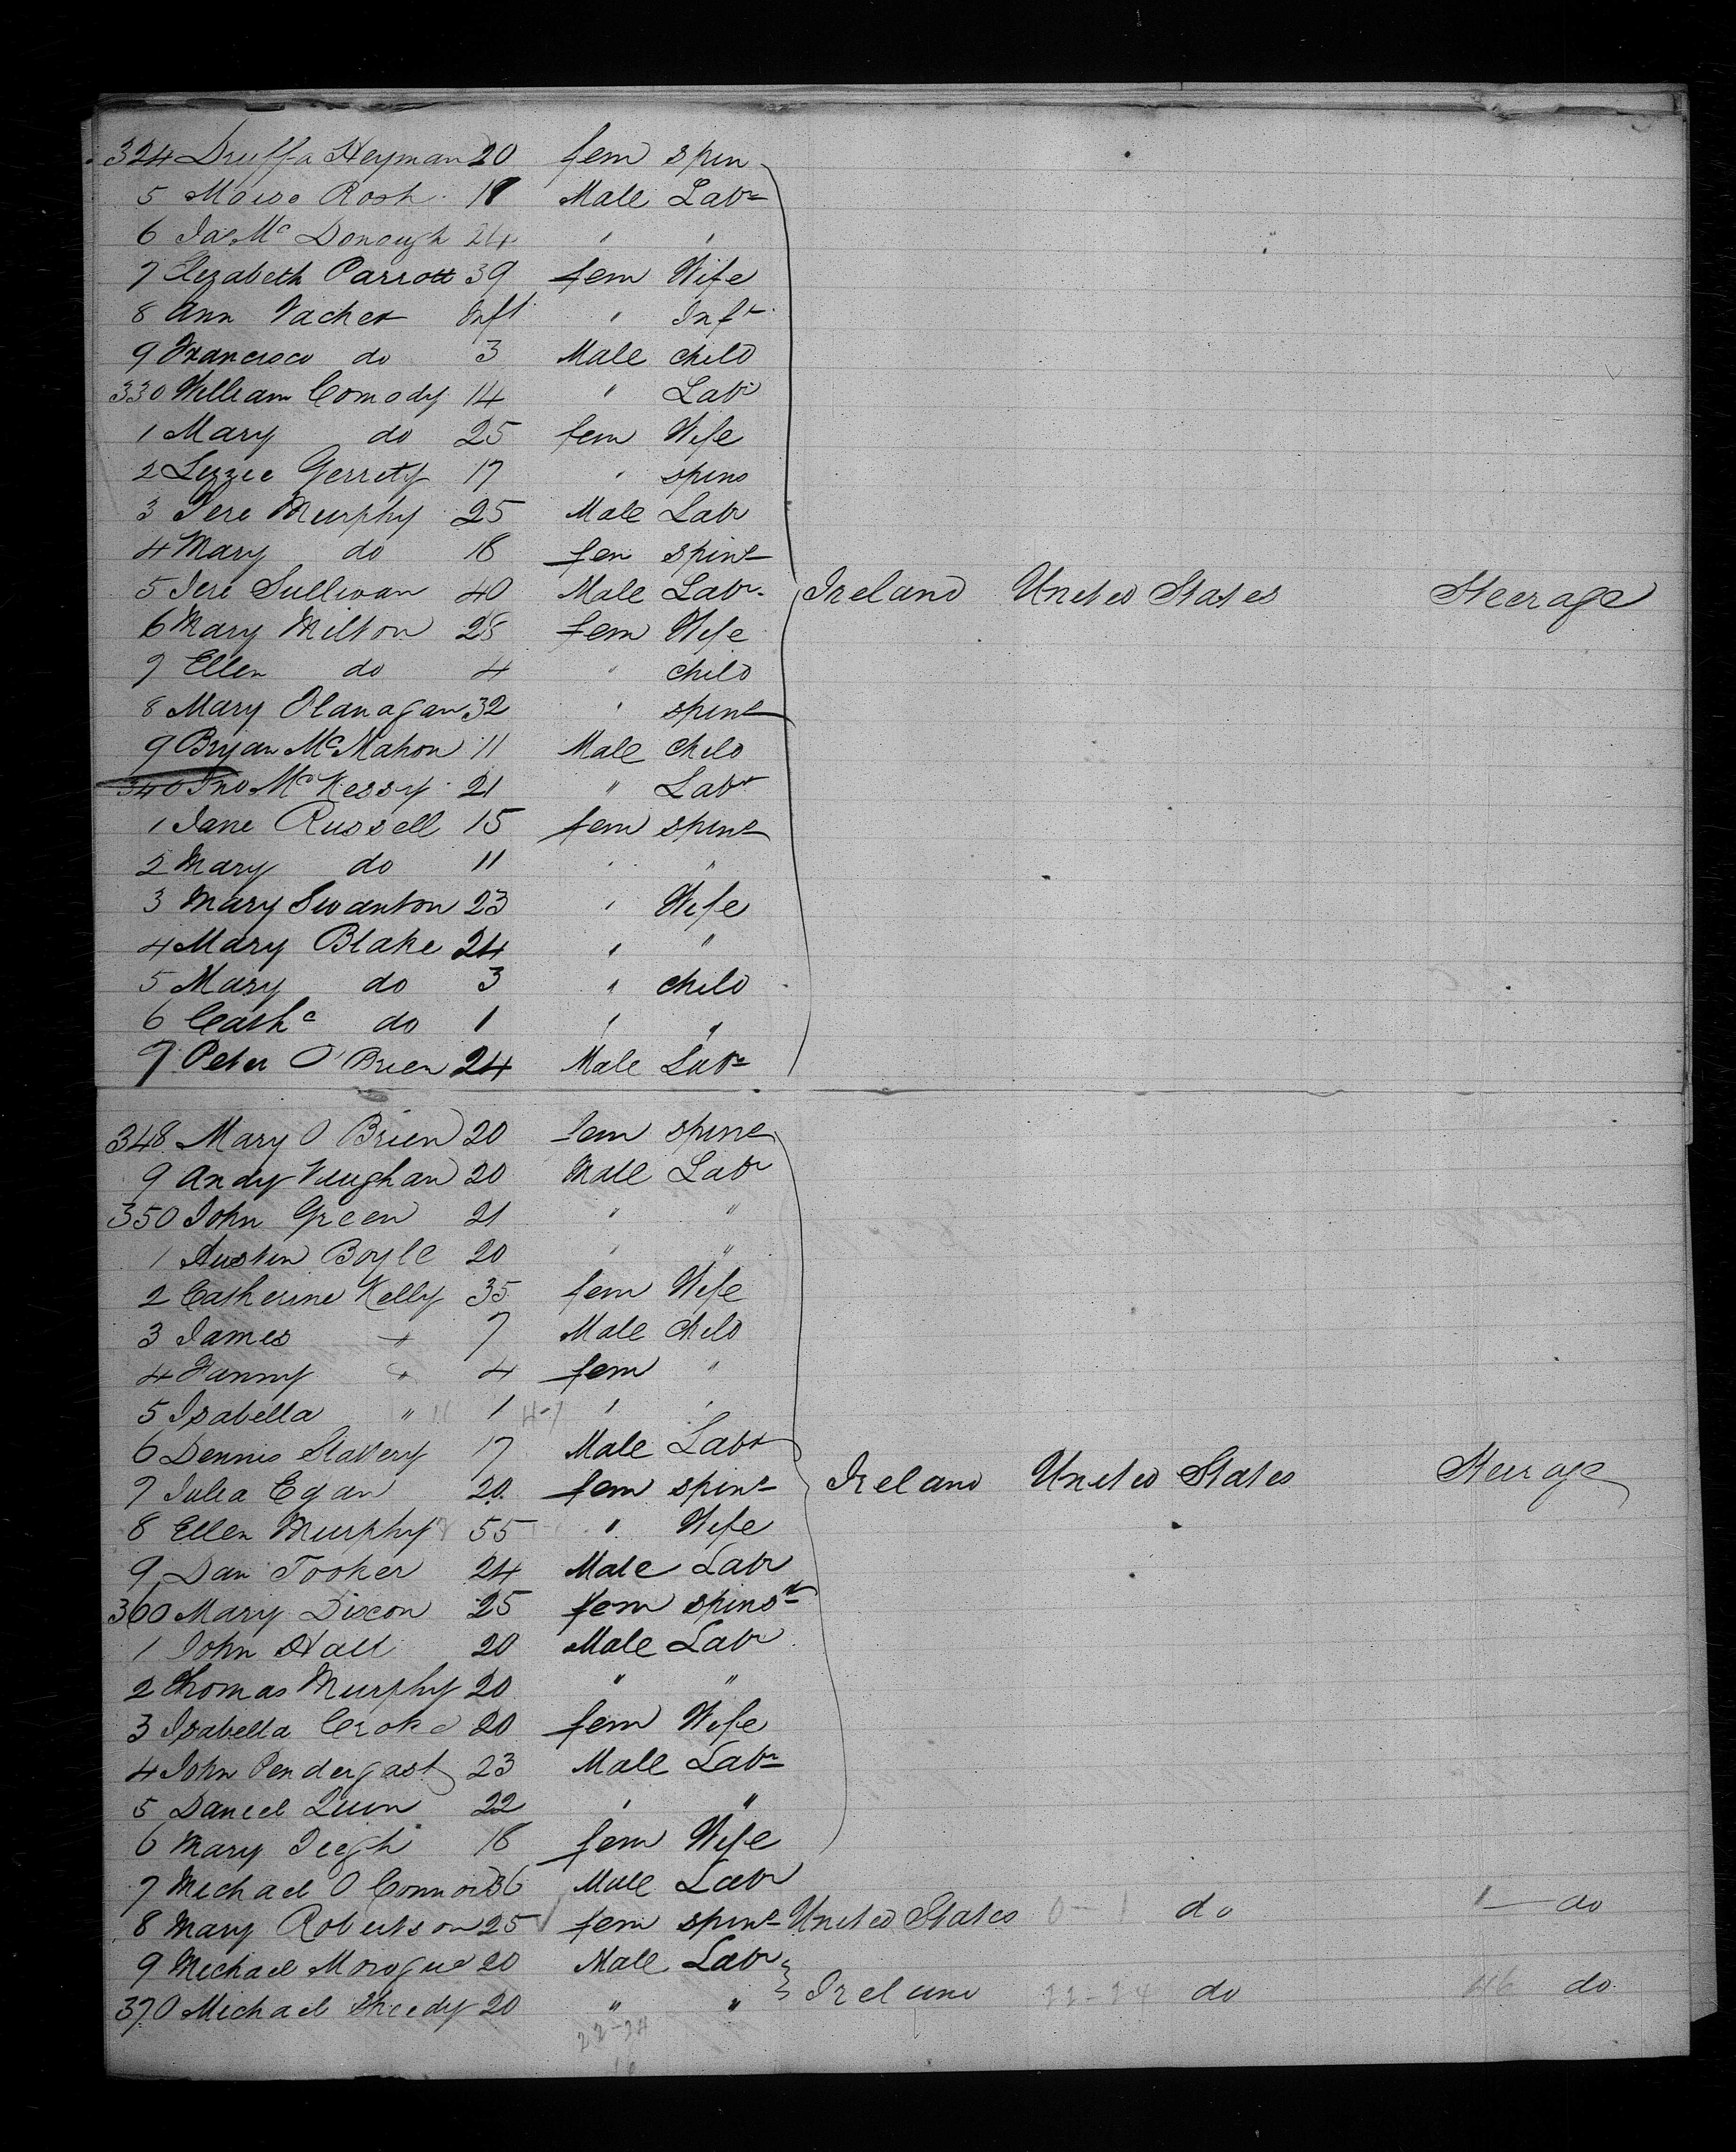 324 Druffa Heyman 20 fem spin
5 Rosh 18 Male Labr
6 Jas Mc Donough 24 " "
7 Elezabeth Parrott 39 fem Wife
8 Ann Vacher Inft " Inft
9 Francisco do 3 Male child
330 William Comody 14 " Labr
1 Mary do 25 fem Wife
2 Lizzie Gerrity 17 " spins
3 Jere Murphy 25 Male Labr
4 Mary do 18 fem spinr
5 Jere Sullivan 40 Male Labr Ireland United States Steerage
6 Mary Milton 28 fem Wife
7 Ellen do 4 " child
8 Mary Olanagan 32 " spinr
9 Bryan Mc Mahon 11 Male child
340 Jno Mc Kessy 21 " Labr
1 Jane Russell 15 fem spinr
2 Mary do 11 " "
3 Mary Swanton 23 " Wife
4 Mary Blake 24 " "
5 Mary do 3 " child
6 Cathe do 1 " "
7 Peter O'Brien 24 Male Labr
348 Mary O Brien 20 fem spinr
9 Andy Vaughan 20 Male Labr
350 John Green 21 " "
1 Austin Boyle 20 " "
2 Catherine Kelly 35 fem Wife
3 James " 7 Male child
4 Fanny " 4 fem "
5 Isabella " 1 " "
6 Dennis Slattery 17 Male Labr
7 Julia Egan 20 fem spinr Ireland United States Steerage
8 Ellen Murphy 55 " Wife
9 Dan Tooker 24 Male Labr
360 Mary Dixon 25 fem spinsr
1 John Hall 20 Male Labr
2 Thomas Murphy 20 " "
3 Isabella Croke 20 fem Wife
4 John Pendergast 23 Male Labr
5 Daniel Quin 22 " "
6 Mary 18 fem Wife
7 Michael O Connor 36 Male Labr
8 Mary Robertson 25 fem spinr United States 0-1 do 1 do
9 Michael Morogue 20 Male Labr
370 Michael Sheedy 20 " " Ireland 22-24 do 46 do
22-24